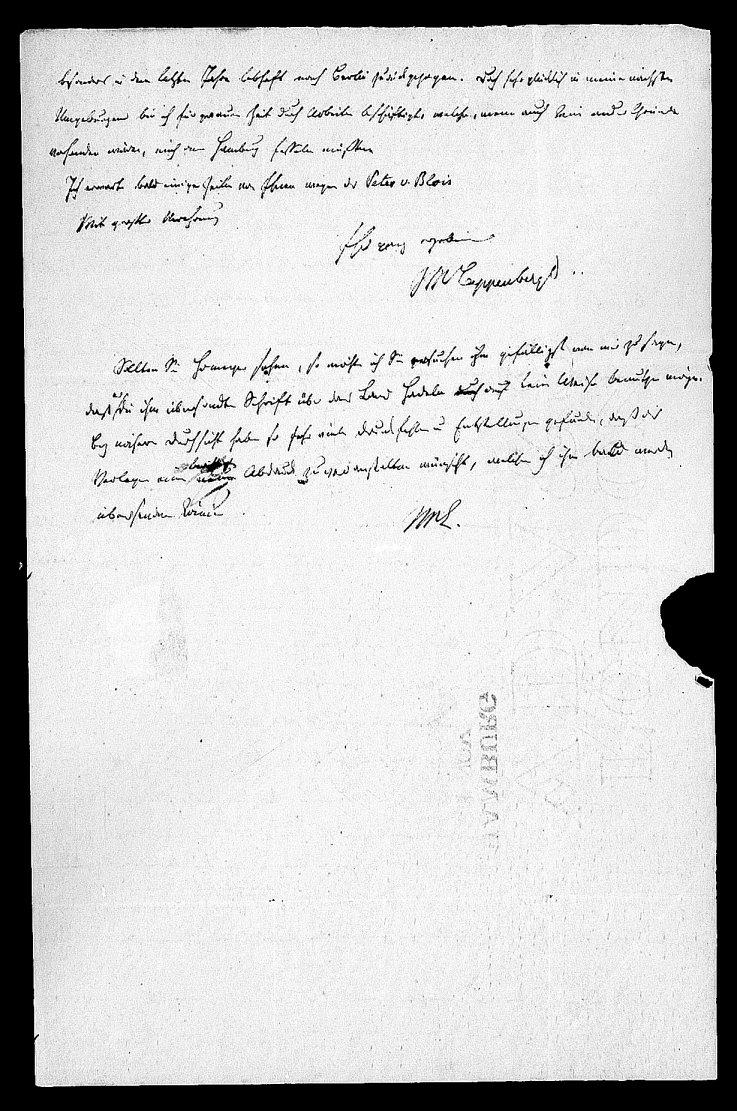 besonders in den letzten Jahren lebhaft nach Berlin zurückgezogen. Doch sehr glücklich in meinen nächsten
Umgebungen bin ich für genaue Zeit durch Arbeiten beschäftigt, welche, wenn auch kein andrer Grund
vorhanden wäre, mich an Hamburg fesseln müßten
Ich erwarte bald einige Zeilen von Ihnen wegen des Peter v. Blois
Mit größter Verehrung
Ihr ganz ergebener
JMLappenberg
Sollten Sie Homeyer sehen, so möchte ich Sie ersuchen ihm gefälligst von mir zu sagen,
daß er die ihm übersandte Schrift über das Land Hadeln doch auf keine Weise benutzen möge.
Bey näherer Durchsicht habe ich sehr viele Druckfehler u Entstellungen gefunden, daß der
Verleger einen Abdruck zu veranstalten wünscht, welchen ich ihm bald werde
übersenden können.
JML.
HAMBURG